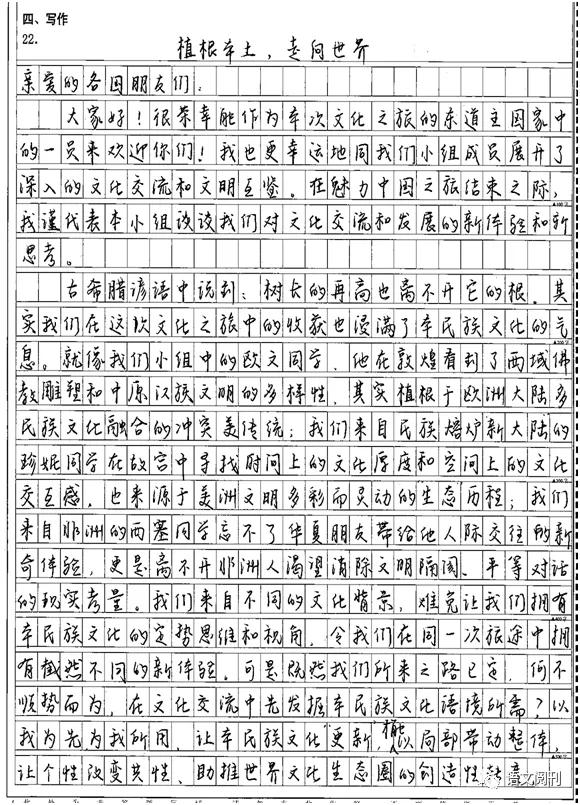 四、写作
22.
植根本土，走向世界
亲爱的各国朋友们：
大家好！很荣幸能作为本次文化之旅的东道主国家中
的一员来欢迎你们！我也更幸运地同我们小组成员展开了
深入的文化交流和文明互鉴。在魅力中国之旅结束之际，
我谨代表本小组谈谈我们对文化交流和发展的新体验和新
思考。
古希腊谚语中说到：树长的再高也离不开它的根。其
实我们在这次文化之旅中的收获也浸满了本民族文化的气
息。就像我们小组中的欧文同学，他在敦煌看到了西域佛
教雕塑和中原汉族文明的多样性，其实植根于欧洲大陆多
民族文化融合的冲突美传统；我们来自民族熔炉新大陆的
珍妮同学在故宫中寻找时间上的文化厚度和空间上的文化
交互感，也来源于美洲文明多彩而灵动的生态历程；我们
来自非洲的西塞同学忘不了华夏朋友带给他人际交往的新
奇体验，更是离不开非洲人渴望消除文明隔阂、平等对话
的现实考量。我们来自不同的文化情景，难免让我们拥有
本民族文化的定势思维和视角，令我们在同一次旅途中拥
有截然不同的新体验。可是既然我们所来之路已定，何不
顺势而为，在文化交流中先发掘本民族文化语境所需？以
我为先为我所用，让本民族文化更新，以局部带动整体，
让个性改变共性、助推世界文化生态圈的创造性
语文阅刊